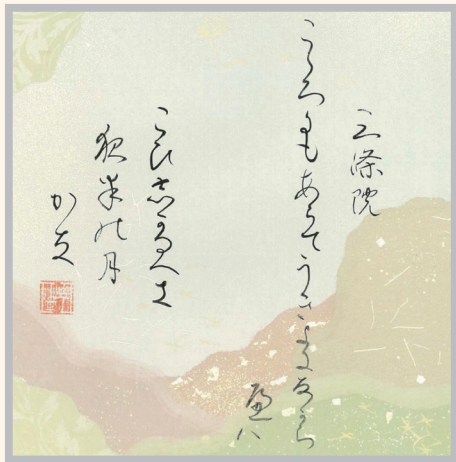 三條院
こゝろにもあらてうきよになから
へハ
こひしかるへき
夜半の月
かな